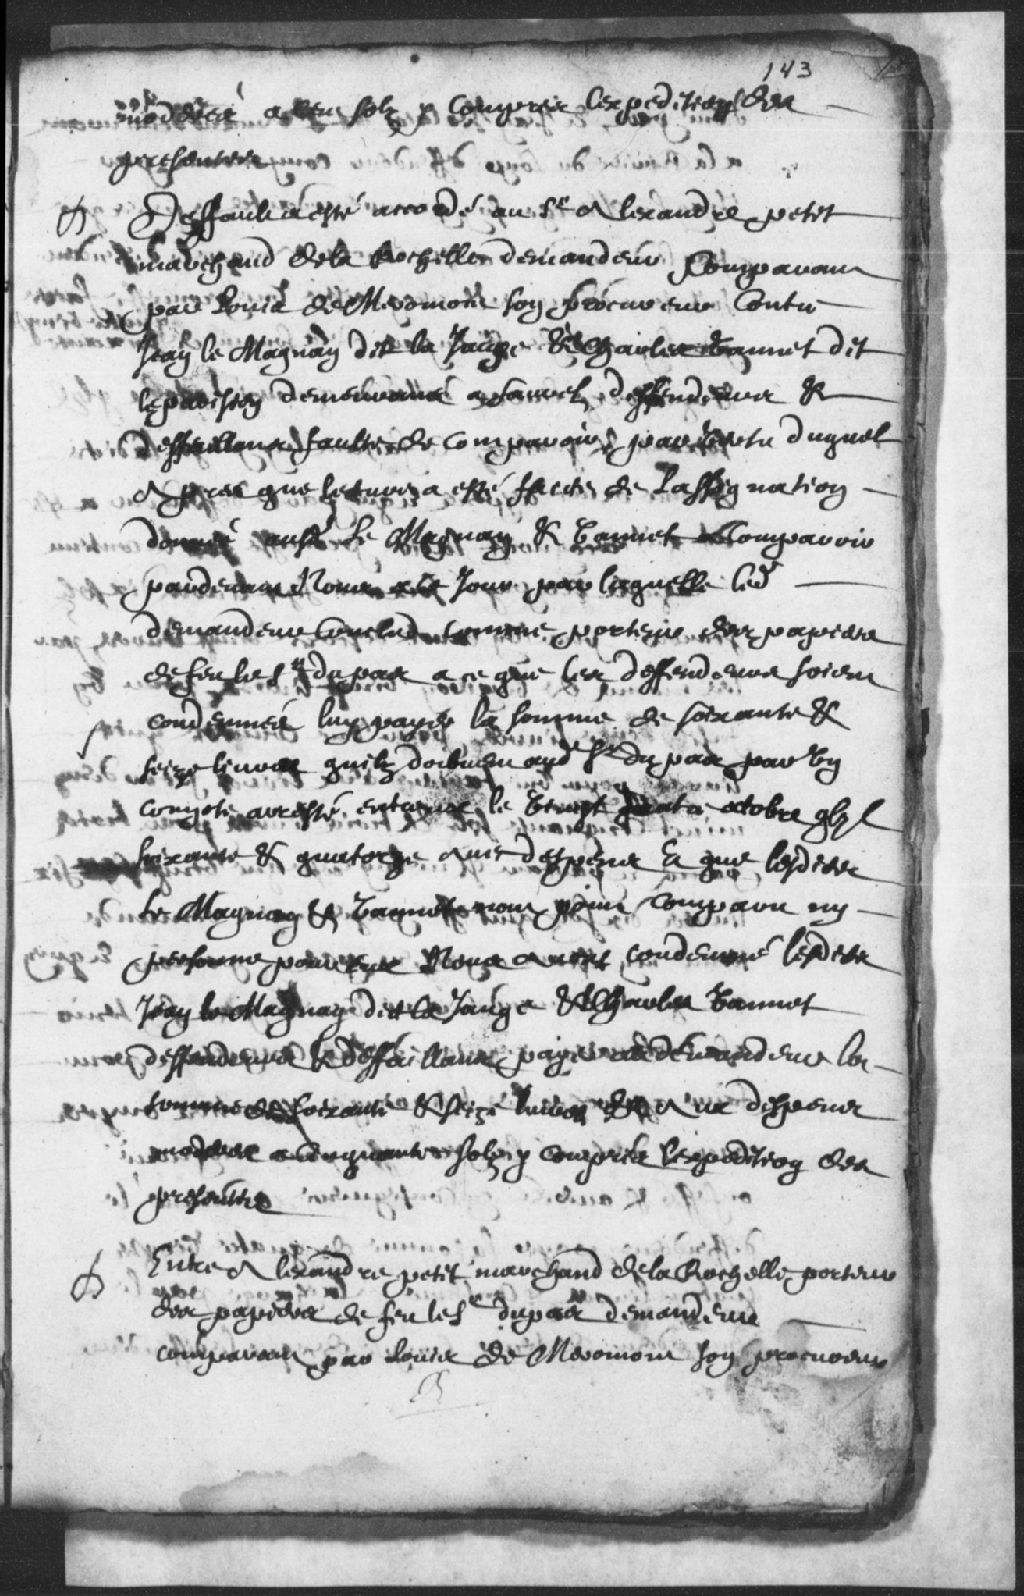 143
modérés a seu solz y compris lexpedition des
presentes
Deffault a esté accordé au Sr Alexandre petit
marchand dela Rochelle demandeur Comparant
par Louis de Meromont son procureur Contre
Jean le Magnan dit la Jauge & Charles Vannet dit
le parisien demeurans a deffendeurs &
deffaillans faulte de comparoir par vertu duquel
Apres que lecture a esté faicte de Lassignation
donnée ausd. Le Magnan & Vannet a Comparoir
pardevant Nous a ce Jour par laquelle led
demandeur Conclud comme porteur des papiers
de feu le Sr dupas a ce que les deffendeurs soient
condemnés luy payer la somme de soixante &
seize livres quilz doibvent aud Sr dupas par un
compte arresté entreux le vingt quatre octobre gbjc
soixante & quatorze avec despens Et que lesdits
Le Magnan & Vannet nont point Comparu ny
personne pour eux Nous avons condemné lesdits
Jean le Magnan dit la Jauge & Charles Vannet
deffendeurs & deffaillans payer au demandeur la
somme de soixante & seize livres & aux despens
moderés a cinquante solz y compris lexpedition des
presentes
Entre Alexandre petit marchand dela Rochelle porteur
des papiers de feu le Sr dupas demandeur
comparant par Louis de Meromont son procureur